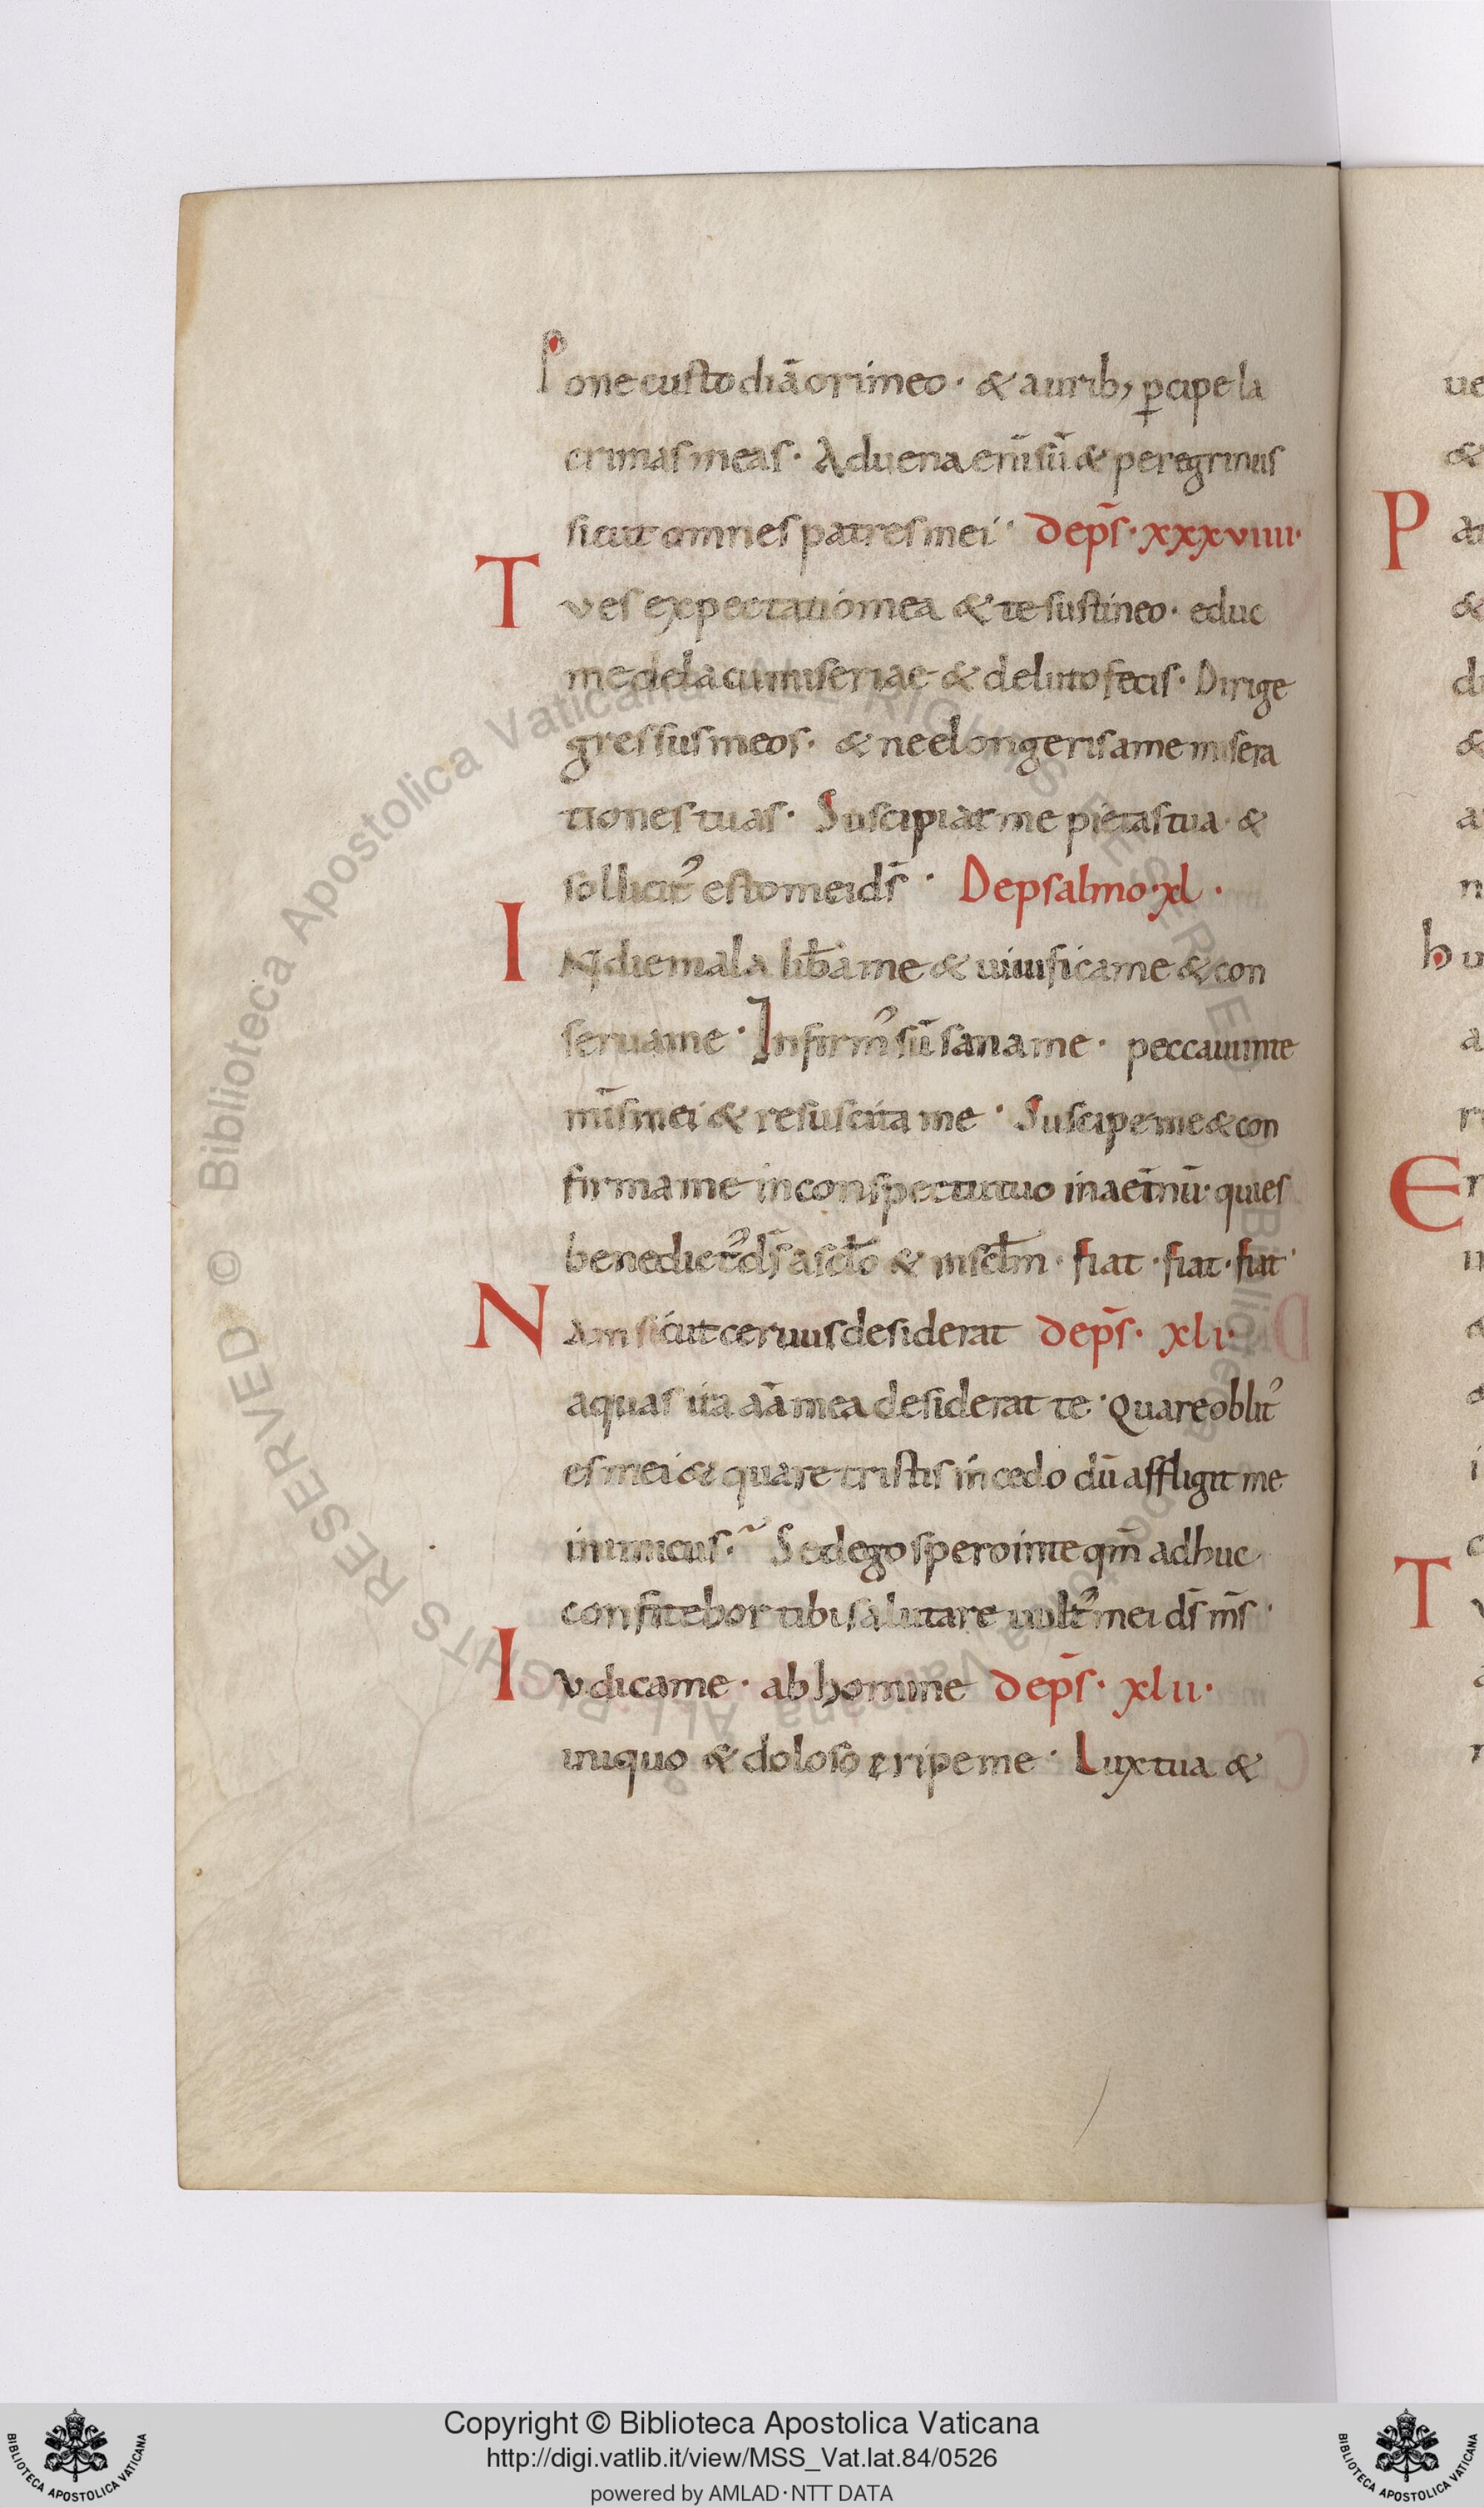 Pone custodiā ori meo · & aurib; ꝑcipe la
crimas meas · Aduena eni̅ su̅ & peregrinus
sicut omnes patres mei · De ps̅ · xxxviiii ·
Tu es expectatio mea & te sustineo · educ
me de lacu miseriae & de luto fecis · Dirige
gressus meos · & ne elongeris a me misera
tiones tuas · Suscipiat me pietas tua · &
sollicit᾽ esto mei ds̅ · De psalmo · xl ·
IN die mala lib̅a me & uiuifica me & con
serua me · Infirm᾽ su̅ sana me · peccaui in te
mi̅s mei & resuscita me · Suscipe me & con
firma me in conspectu tuo in aet̅nu̅ · qui es
benedict᾽ ds̅ a sc̅lo & in sc̅lm · fiat · fiat · fiat ·
NAm sicut ceruus desiderat De ps̅ · xli ·
aquas ita aa̅ mea desiderat te · Quare oblit᾽
es mei & quare tristis incedo du̅ affligit me
inimicus · Sed ego spero in te qm̅ adhuc
confitebor tibi salutare uult᾽ mei ds̅ ms̅ ·
Iudica me · ab homine De ps̅ · xlii ·
iniquo & doloso eripe me · Lux tua &
ue
&
P
&
E
T
© Biblioteca Apostolica Vaticana ALL RIGHTS RESERVED
© Biblioteca Apostolica Vaticana ALL RIGHTS RESERVED
Copyright © Biblioteca Apostolica Vaticana
http://digi.vatlib.it/view/MSS_Vat.lat.84/0526
powered by AMLAD·NTT DATA
BIBLIOTECA APOSTOLICA VATICANA
BIBLIOTECA APOSTOLICA VATICANA